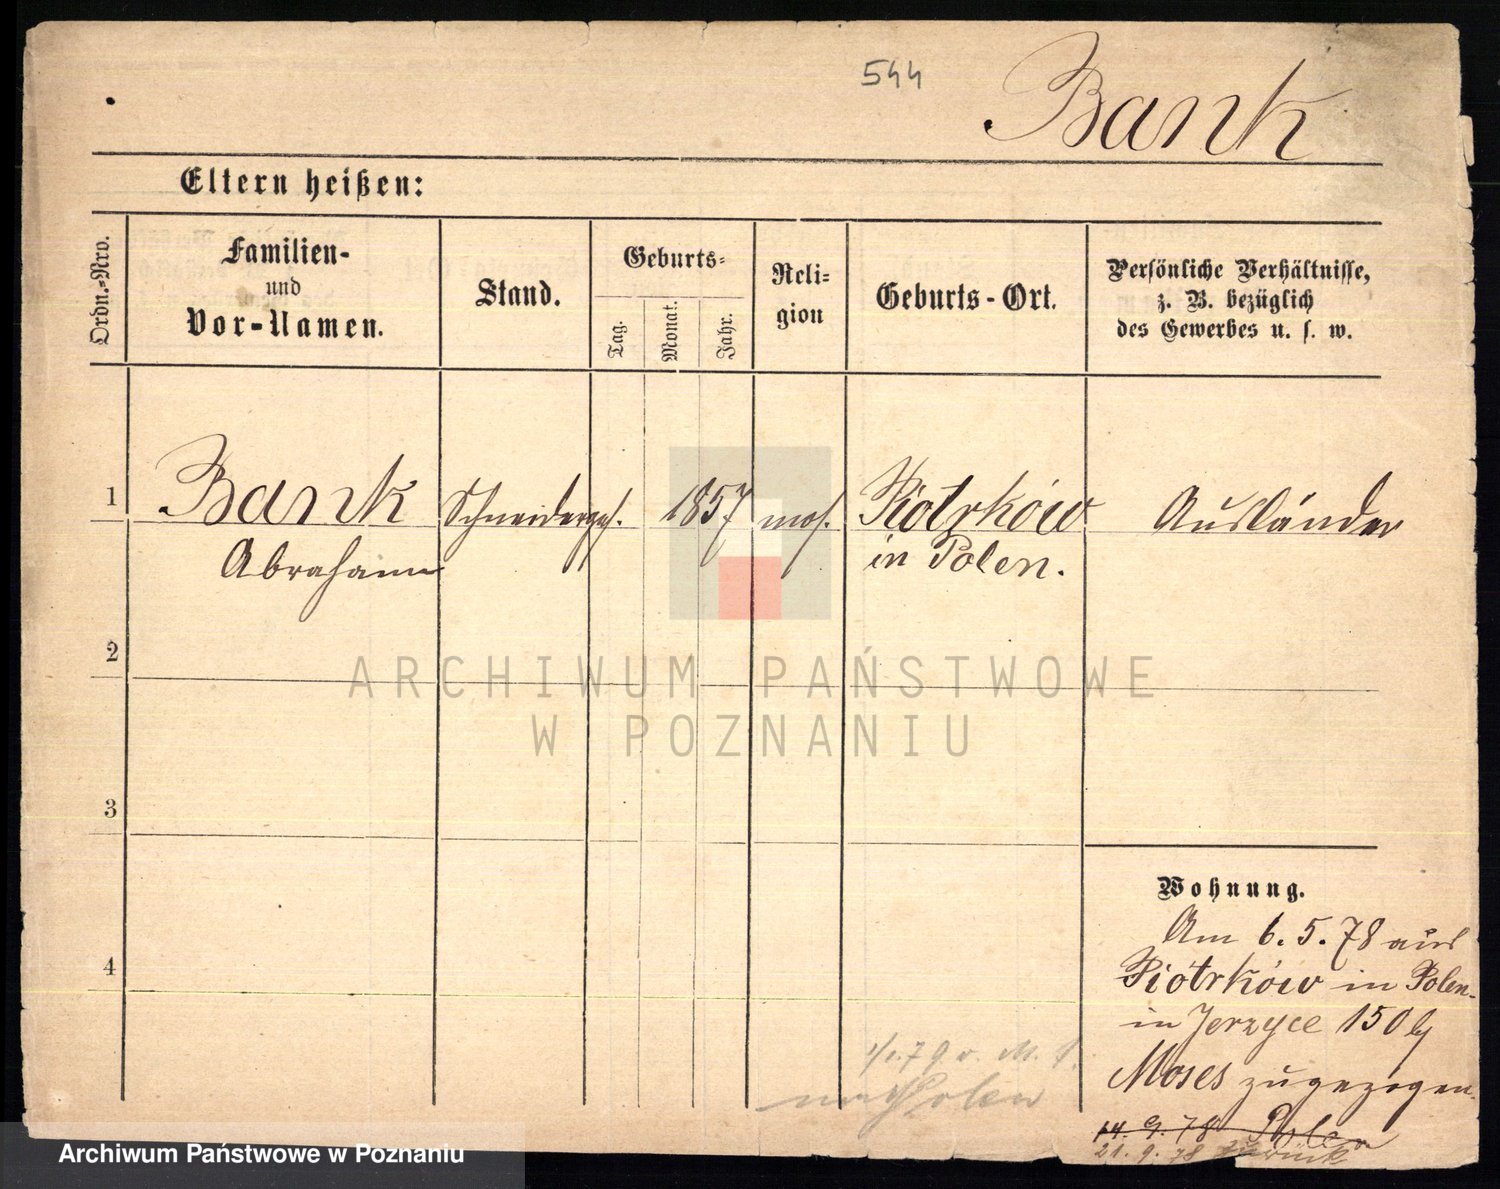 544
Bank
Eltern heißen:
Ordn.-Nro.
Familien-
und
Vor-Namen.
Stand.
Geburts-
Tag.
Monat.
Jahr.
Reli-
gion
Geburts-Ort.
Persönliche Verhältnisse,
z. B. bezüglich
des Gewerbes u. s. w.
1
Bank
Abraham
Schneiderges.
1857
mos.
Piotrków
in Polen.
Ausländer
2
ARCHIWUM PAŃSTWOWE
W POZNANIU
3
4
Wohnung.
Am 6. 5. 78 aus
Piótrków in Polen
in Jerzyce 150 b/
Moses zugezogen.
14. 9. 78 Polen
21. 9. 78 zurück
79 v. M.
nach Polen
Archiwum Państwowe w Poznaniu